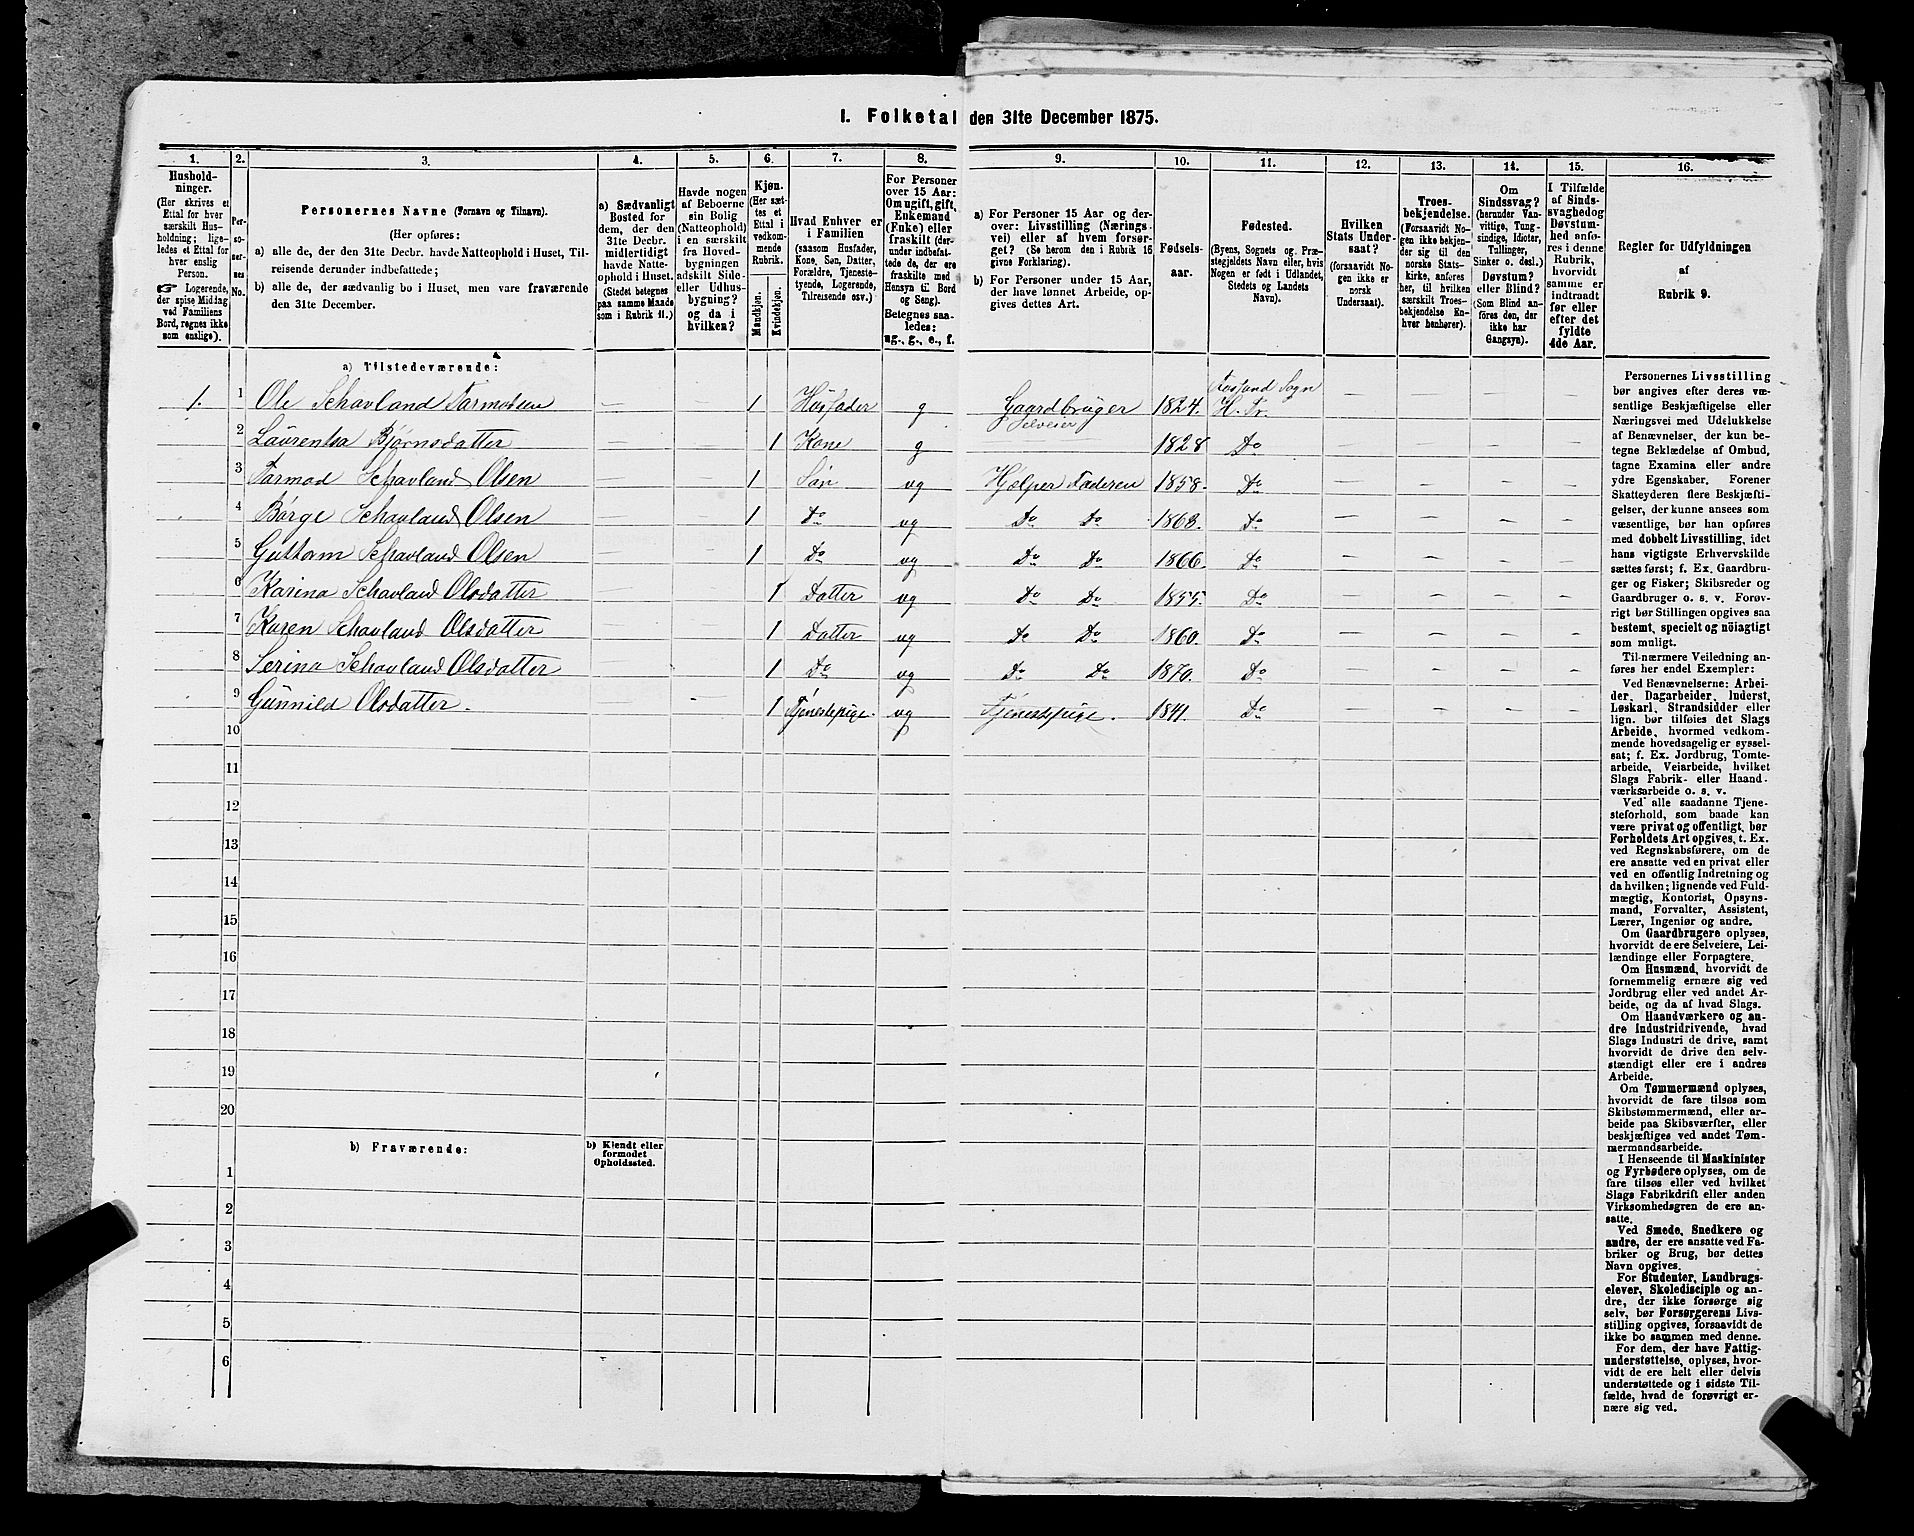 I. Folketal den 31te December 1875.
1. 2. 3. 4. 5. 6. 7. 8. 9. 10. 11. 12. 13. 14. 15. 16.
Hushold-
ninger.
(Her skrives et
Ettal for hver
særskilt Hus-
holdning; lige-
ledes et Ettal for
hver enslig
Person.
☞ Logerende,
der spise Middag
ved Familiens
Bord, regnes ikke
som enslige).
Per-
so-
ner-
nes
No.
Personernes Navne (Fornavn og Tilnavn).
(Her opføres:
a) alle de, der den 31te Decbr. havde Natteophold i Huset, Til-
reisende derunder indbefattede;
b) alle de, der sædvanlig bo i Huset, men vare fraværende
den 31te December.
a) Sædvanligt
Bosted for
dem, der den
31te Decbr.
midlertidigt
havde Natte-
ophold i Huset.
(Stedet betegnes
paa samme Maade
som i Rubrik 11.)
Havde nogen
af Beboerne
sin Bolig
(Natteophold)
i en særskilt
fra Hoved-
bygningen
adskilt Side-
eller Udhus-
bygning?
og da i
hvilken?
Kjøn.
(Her sæt-
tes et
Ettal i
vedkom-
mende
Rubrik.
Mandkjøn.
Kvindekjøn.
Hvad Enhver er
i Familien
(saasom Husfader,
Kone, Søn, Datter,
Forældre, Tjeneste-
tyende, Logerende,
Tilreisende osv.)
For Personer
over 15 Aar:
Om ugift, gift,
Enkemand
(Enke) eller
fraskilt (der-
under indbefat-
tede de, der ere
fraskilte med
Hensyn til Bord
og Seng).
Betegnes saa-
ledes:
ug., g., e., f.
a) For Personer 15 Aar og der-
over: Livsstilling (Nærings-
vei) eller af hvem forsør-
get? (Se herom den i Rubrik 16
givne Forklaring).
b) For Personer under 15 Aar,
der have lønnet Arbeide, op-
gives dettes Art.
Fødsels-
aar.
Fødested.
(Byens, Sognets og, Præ-
stegjeldets Navn eller, hvis
Nogen er født i Udlandet,
Stedets og Landets
Navn).
Hvilken
Stats Under-
saat?
(forsaavidt No-
gen ikke er
norsk
Undersaat).
Troes-
bekjendelse.
(Forsaavidt No-
gen ikke bekjen-
der sig til den
norske Stats-
kirke, anføres
her, til hvilken
særskilt Troes-
bekjendelse En-
hver henhører).
Om
Sindssvag?
(herunder Van-
vittige, Tung-
sindige, Idioter,
Tullinger,
Sinker o. desl.)
Døvstum?
eller Blind?
(Som Blind an-
føres den, der
ikke har
Gangsyn).
I Tilfælde
af Sinds-
svaghed og
Døvstum-
hed anfø-
res i denne
Rubrik,
hvorvidt
samme er
indtraadt
før eller
efter det
fyldte
4de Aar.
Regler for Udfyldningen
af
Rubrik 9.
a) Tilstedeværende:
1. 1 Ole Schavland Tarmodsen — — 1 Husfader g Gaardbruger Selveier 1824. Fossand Sogn H. Pr. — — — —
2 Laurentsa Bjørnsdatter — — 1 Kone g 1828 Do — — — —
3 Tarmod Schavland Olsen — — 1 Søn ug Hjelper Faderen 1858. Do — — — —
4 Børge Schavland Olsen — — 1 Do ug Do Do 1863. Do — — — —
5 Guttorm Schavland Olsen — — 1 Do ug Do Do 1866. Do — — — —
6 Karina Schavland Olsdatter — — 1 Datter ug Do Do 1855. Do — — — —
7 Karen Schavland Olsdatter — — 1 Datter ug Do Do 1860. Do — — — —
8 Serina Schavland Olsdatter — — 1 Do ug Do Do 1870. Do — — — —
9 Gunnild Olsdatter. — — 1 Tjenestepige. ug Tjenestepige. 1841. Do — — — —
10
11
12
13
14
15
16
17
18
19
20
b) Fraværende:
b) Kjendt eller
formodet
Opholdssted.
1
2
3
4
5
6
Personernes Livsstilling
bør angives efter deres væ-
sentlige Beskjæftigelse eller
Næringsvei med Udelukkelse
af Benævnelser, der kun be-
tegne Beklædelse af Ombud,
tagne Examina eller andre
ydre Egenskaber. Forener
Skatteyderen flere Beskjæfti-
gelser, der kunne ansees som
væsentlige, bør han opføres
med dobbelt Livsstilling, idet
hans vigtigste Erhvervskilde
sættes først; f. Ex. Gaardbru-
ger og Fisker; Skibsreder og
Gaardbruger o. s. v. Forøv-
rigt bør Stillingen opgives saa
bestemt, specielt og nøiagtigt
som muligt.
Til nærmere Veiledning an-
føres her endel Exempler:
Ved Benævnelserne: Arbei-
der, Dagarbeider, Inderst,
Løskarl, Strandsidder eller
lign. bør tilføies det Slags
Arbeide, hvormed vedkom-
mende hovedsagelig er syssel-
sat; f. Ex. Jordbrug, Tomte-
arbeide, Veiarbeide, hvilket
Slags Fabrik- eller Haand-
værksarbeide o. s. v.
Ved alle saadanne Tjene-
steforhold, som baade kan
være privat og offentligt, bør
Forholdets Art opgives, t. Ex.
ved Regnskabsførere, om de
ere ansatte ved en privat eller
ved en offentlig Indretning og
da hvilken; lignende ved Fuld-
mægtig, Kontorist, Opsyns-
mand, Forvalter, Assistent,
Lærer, Ingeniør og andre.
Om Gaardbrugere oplyses,
hvorvidt de ere Selveiere, Lei-
lændinge eller Forpagtere.
Om Husmænd, hvorvidt de
fornemmelig ernære sig ved
Jordbrug eller ved andet Ar-
beide, og da af hvad Slags.
Om Haandværkere og an-
dre Industridrivende, hvad
Slags Industri de drive, samt
hvorvidt de drive den selv-
stændigt eller ere i andres
Arbeide.
Om Tømmermænd oplyses,
hvorvidt de fare tilsøs som
Skibstømmermænd, eller ar-
beide paa Skibsværfter, eller
beskjæftiges ved andet Tøm-
mermandsarbeide.
I Henseende til Maskinister
og Fyrbødere oplyses, om de
fare tilsøs eller ved hvilket
Slags Fabrikdrift eller anden
Virksomhedsgren de ere an-
satte.
Ved Smede, Snedkere og
andre, der ere ansatte ved Fa-
briker og Brug, bør dettes
Navn opgives.
For Studenter, Landbrugs-
elever, Skoledisciple og an-
dre, der ikke forsørge sig
selv, bør Forsørgerens Livs-
stilling opgives, forsaavidt de
ikke bo sammen med denne.
For dem, der have Fattig-
understøttelse, oplyses, hvor-
vidt de ere helt eller delvis
understøttede og i sidste Til-
fælde, hvad de forøvrigt er-
nære sig ved.